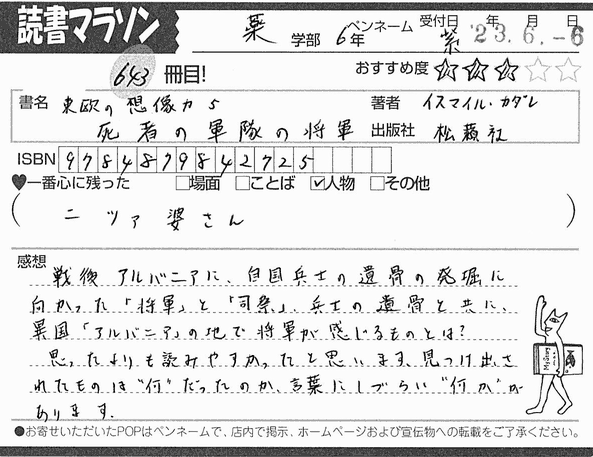 読書マラソン
薬 学部 6年 ペンネーム 紫 受付日 年 月 日 '23.6.-6
643 冊目! おすすめ度 ☆☆☆☆☆
書名 東欧の想像力5 著者 イスマイル・カダレ
死者の軍隊の将軍 出版社 松籟社
ISBN 9784879842725
♥一番心に残った □場面 □ことば ☑人物 □その他
( ニツァ婆さん )
感想
戦後アルバニアに、自国兵士の遺骨の発掘に
向かった「将軍」と「司祭」、兵士の遺骨と共に、
異国「アルバニア」の地で将軍が感じるものとは?
思ったよりも読みやすかったと思います。見つけ出さ
れたものは"何"だったのか、言葉にしづらい"何か"が
あります.
●お寄せいただいたPOPはペンネームで、店内で掲示、ホームページおよび宣伝物への転載をご了承ください。